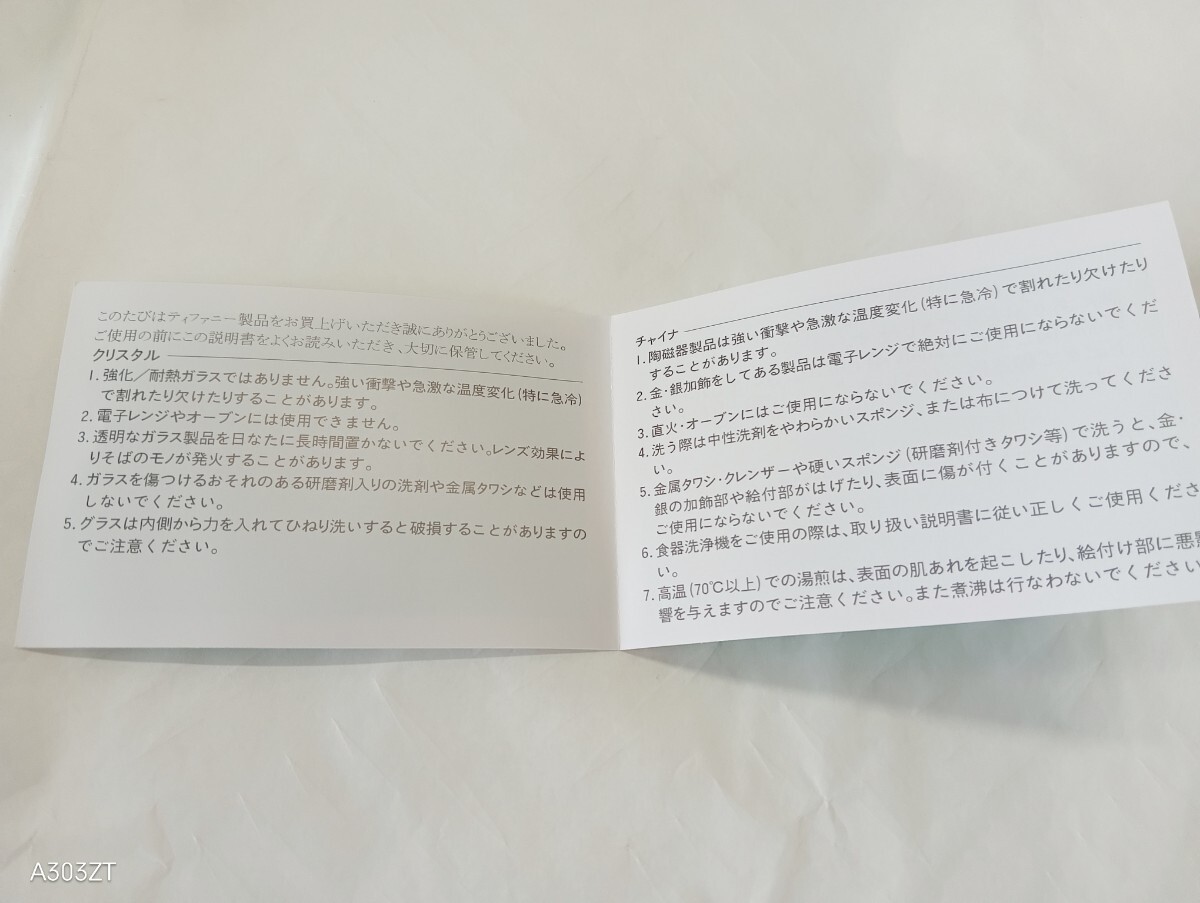 このたびはティファニー製品をお買上げいただき誠にありがとうございました。
ご使用の前にこの説明書をよくお読みいただき、大切に保管してください。
クリスタル
1. 強化/耐熱ガラスではありません。強い衝撃や急激な温度変化(特に急冷)
で割れたり欠けたりすることがあります。
2. 電子レンジやオーブンには使用できません。
3. 透明なガラス製品を日なたに長時間置かないでください。レンズ効果によ
りそばのモノが発火することがあります。
4. ガラスを傷つけるおそれのある研磨剤入りの洗剤や金属タワシなどは使用
しないでください。
5. グラスは内側から力を入れてひねり洗いすると破損することがありますの
でご注意ください。
チャイナ
1. 陶磁器製品は強い衝撃や急激な温度変化(特に急冷)で割れたり欠けたり
することがあります。
2. 金・銀加飾をしてある製品は電子レンジで絶対にご使用にならないでくだ
さい。
3. 直火・オーブンにはご使用にならないでください。
4. 洗う際は中性洗剤をやわらかいスポンジ、または布につけて洗ってくださ
い。
5. 金属タワシ・クレンザーや硬いスポンジ(研磨剤付きタワシ等)で洗うと、金・
銀の加飾部や絵付部がはげたり、表面に傷が付くことがありますので、
ご使用にならないでください。
6. 食器洗浄機をご使用の際は、取り扱い説明書に従い正しくご使用くださ
い。
7. 高温(70℃以上)での湯煎は、表面の肌あれを起こしたり、絵付け部に悪影
響を与えますのでご注意ください。また煮沸は行なわないでください
A303ZT